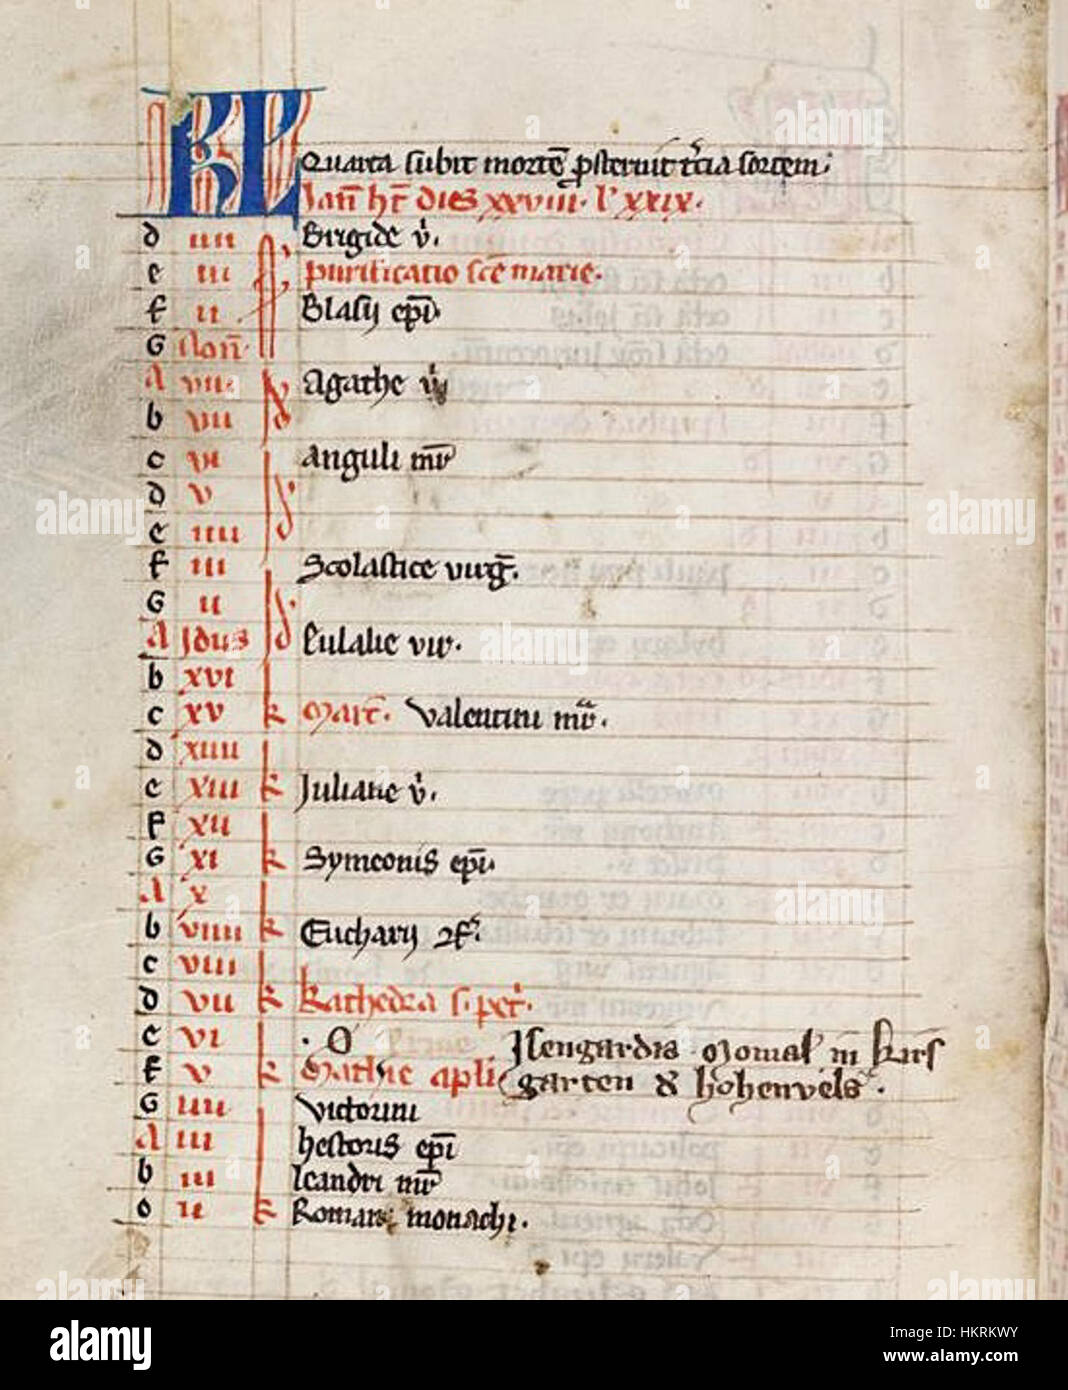 KL Quarta subit mortē ꝓsternit t'cia sortem
ffan̄ ht̄ dies xxviii. l' xxix.
d iiii Brigide v̇.
e iii purificatio sc̄e marie.
f ii Blasij ep̄i
G Non̄
A viii Agathe v̇
b vii
c vi Anguli mr̄
d v
e iiii
f iii Scolastice virg̅.
G ii
A Jdus Eulalie vir.
b xvi
c xv k Mart̄. Valentini mr̄.
d xiiii
e xiii k Juliane v̇.
f xii
G xi k Symeonis ep̄i.
A x
b viiii k Eucharij
c viii
d vii k Kathedra s. pet'.
e vi . O Jsengardis Monial' in
f v k Mathie apl'i garten & hohenvels.
G iiii Victorini
A iii hestoris ep̄i
b iii leandri mr̄
c ii k Romani monachi.
alamy
a
alamy
Image ID: HKRKWY
www.alamy.com